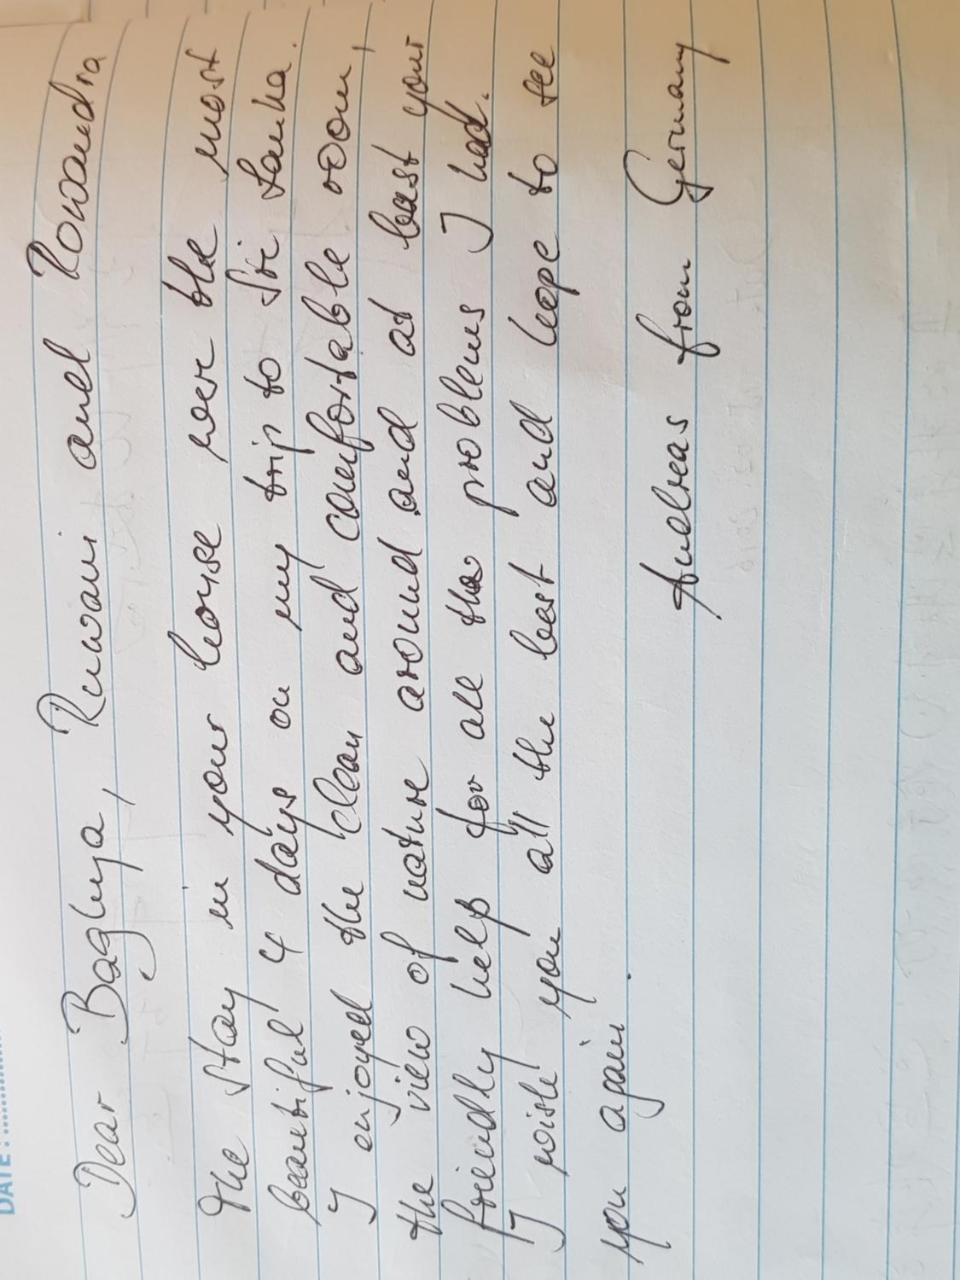 DATE :............
Dear Baghya, Ruwani and Romandra
The stay in your house were the most
beautiful 4 days on my trip to Sri Lanka.
I enjoyed the clean and comfortable room,
the view of nature around and at least your
friendly help for all the problems I had.
I wish you all the best and hope to see
you again.
Andreas from Germany